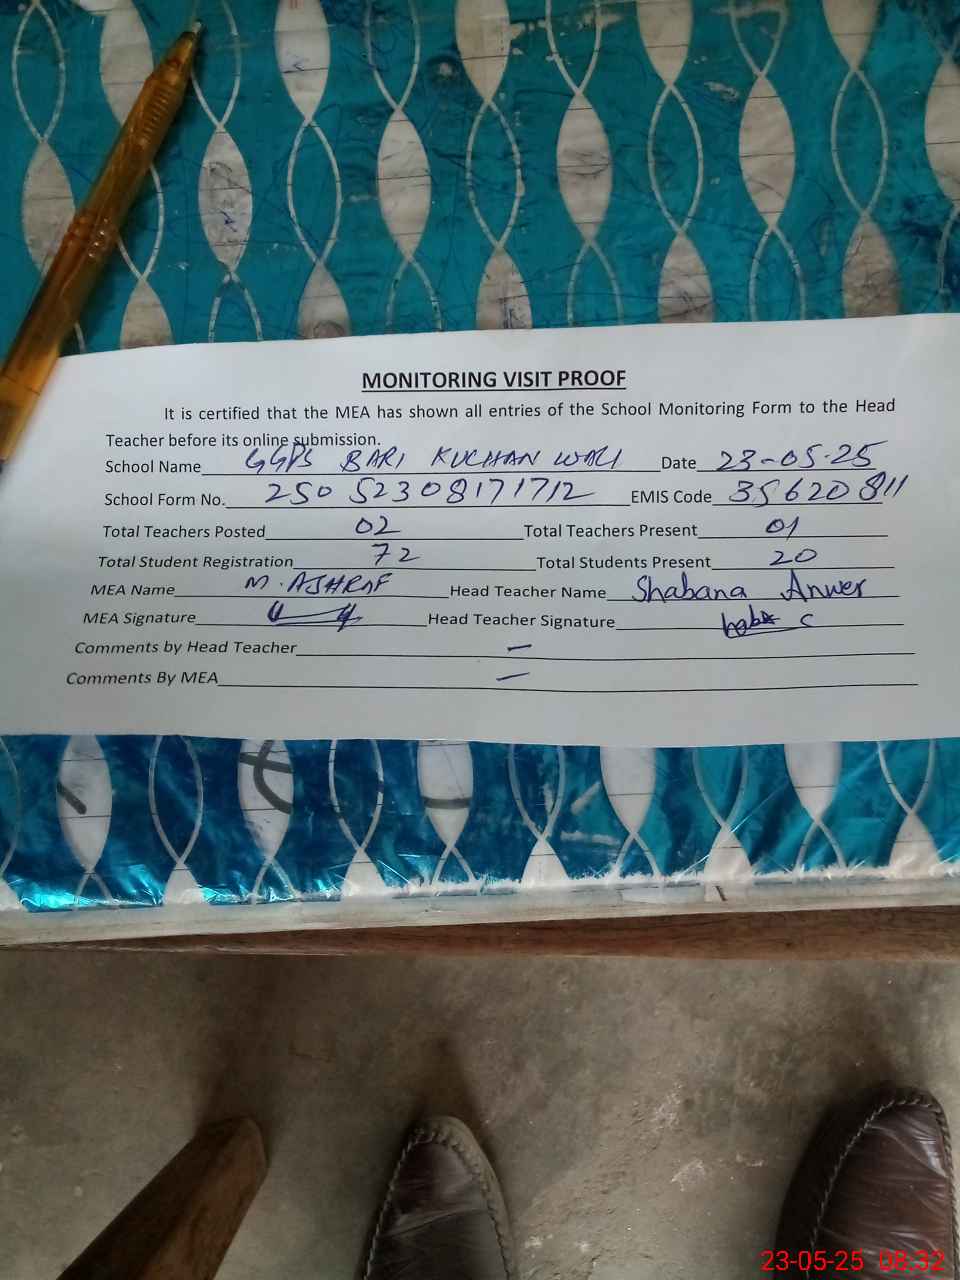 MONITORING VISIT PROOF
It is certified that the MEA has shown all entries of the School Monitoring Form to the Head
Teacher before its online submission.
School Name GGPS BARI KUCHAN WALI Date 23-05-25
School Form No. 25052308171712 EMIS Code 35620811
Total Teachers Posted 02 Total Teachers Present 01
Total Student Registration 72 Total Students Present 20
MEA Name M. ASHRAF Head Teacher Name Shabana Anwer
MEA Signature Head Teacher Signature
Comments by Head Teacher —
Comments By MEA —
23-05-25 08:32